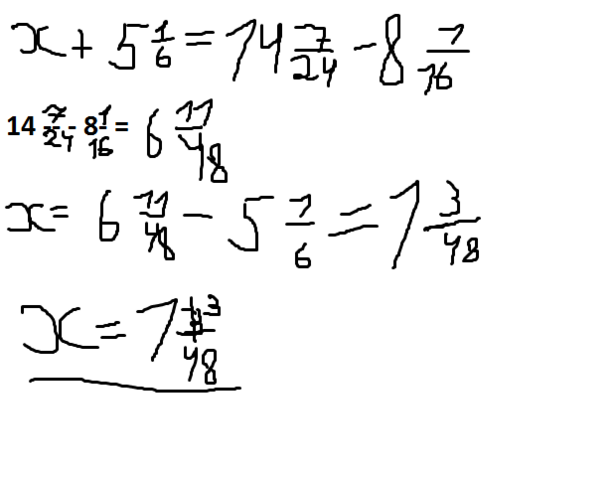 x + 5 1/6 = 14 7/24 - 8 1/16
14 7/24 - 8 1/16 = 6 11/48
x = 6 11/48 - 5 1/6 = 1 3/48
x = 1 3/48